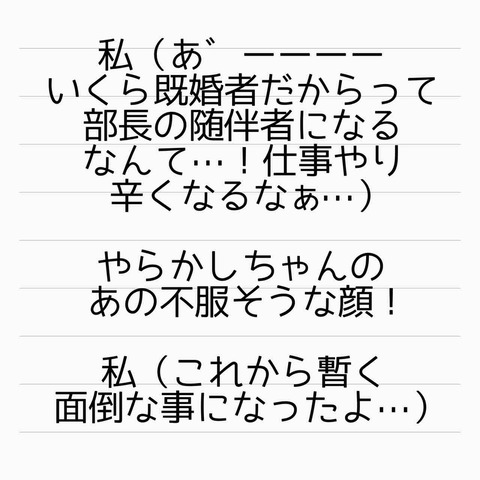 私（あ゛ーーーー
いくら既婚者だからって
部長の随伴者になる
なんて…！仕事やり
辛くなるなぁ…）
やらかしちゃんの
あの不服そうな顔！
私（これから暫く
面倒な事になったよ…）